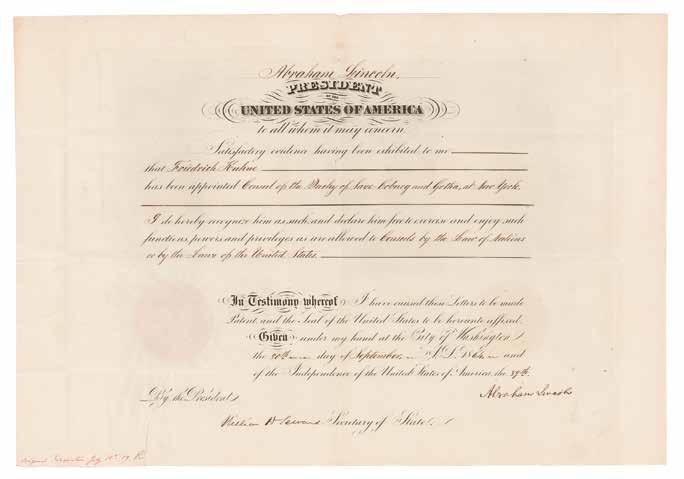 Abraham Lincoln,
PRESIDENT
OF THE
UNITED STATES OF AMERICA
to all whom it may concern.
Satisfactory evidence having been exhibited to me
that Friedrich Kuhne
has been appointed Consul of the Duchy of Saxe Coburg and Gotha, at New York.
I do hereby recognize him as such, and declare him free to exercise and enjoy such
functions, powers and privileges as are allowed to Consuls by the Law of Nations
or by the Laws of the United States.
In Testimony whereof I have caused these Letters to be made
Patent, and the Seal of the United States to be hereunto affixed.
Given under my hand at the City of Washington
the 20th day of September, A.D. 1864 and
of the Independence of the United States of America, the 89th.
Abraham Lincoln
By the President,
William H Seward Secretary of State.